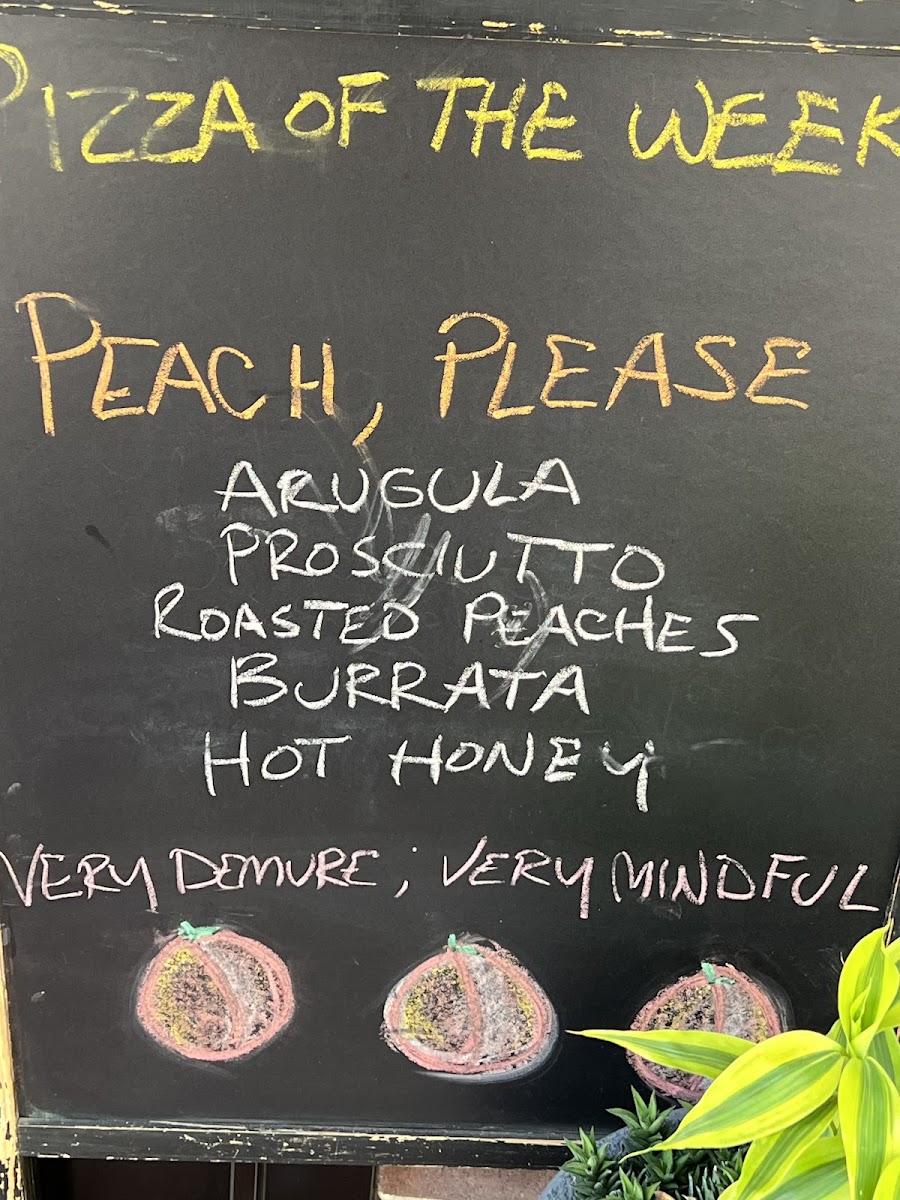 PIZZA OF THE WEEK
PEACH, PLEASE
ARUGULA
PROSCIUTTO
ROASTED PEACHES
BURRATA
HOT HONEY
VERY DEMURE; VERY MINDFUL